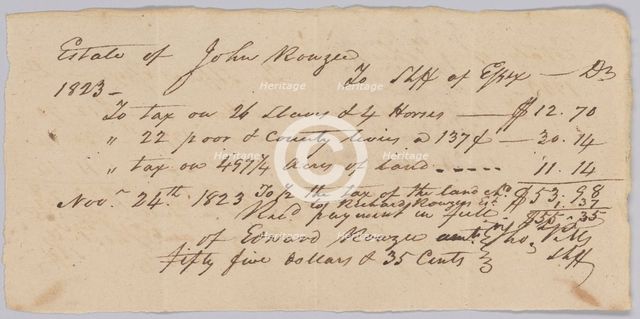 Estate of John Rouzee
To Shff of Essex — Dr
1823 —
To tax on 26 Slaves & 4 Horses — $12.70
" 22 poor & County levies a 137¢ — 30.14
" tax on 497¼ Acres of land ----- 11.14
$53.98
Novr. 24th. 1823 To ½ the tax of the land chd
to Richard Rouzee's est. 1.37
Recd. payment in full $55.35
of Edward Rouzee Pitts
fifty five Dollars & 35 Cents Shff
Heritage
Heritage
Heritage
Heritage
Heritage
Heritage
Heritage
Heritage